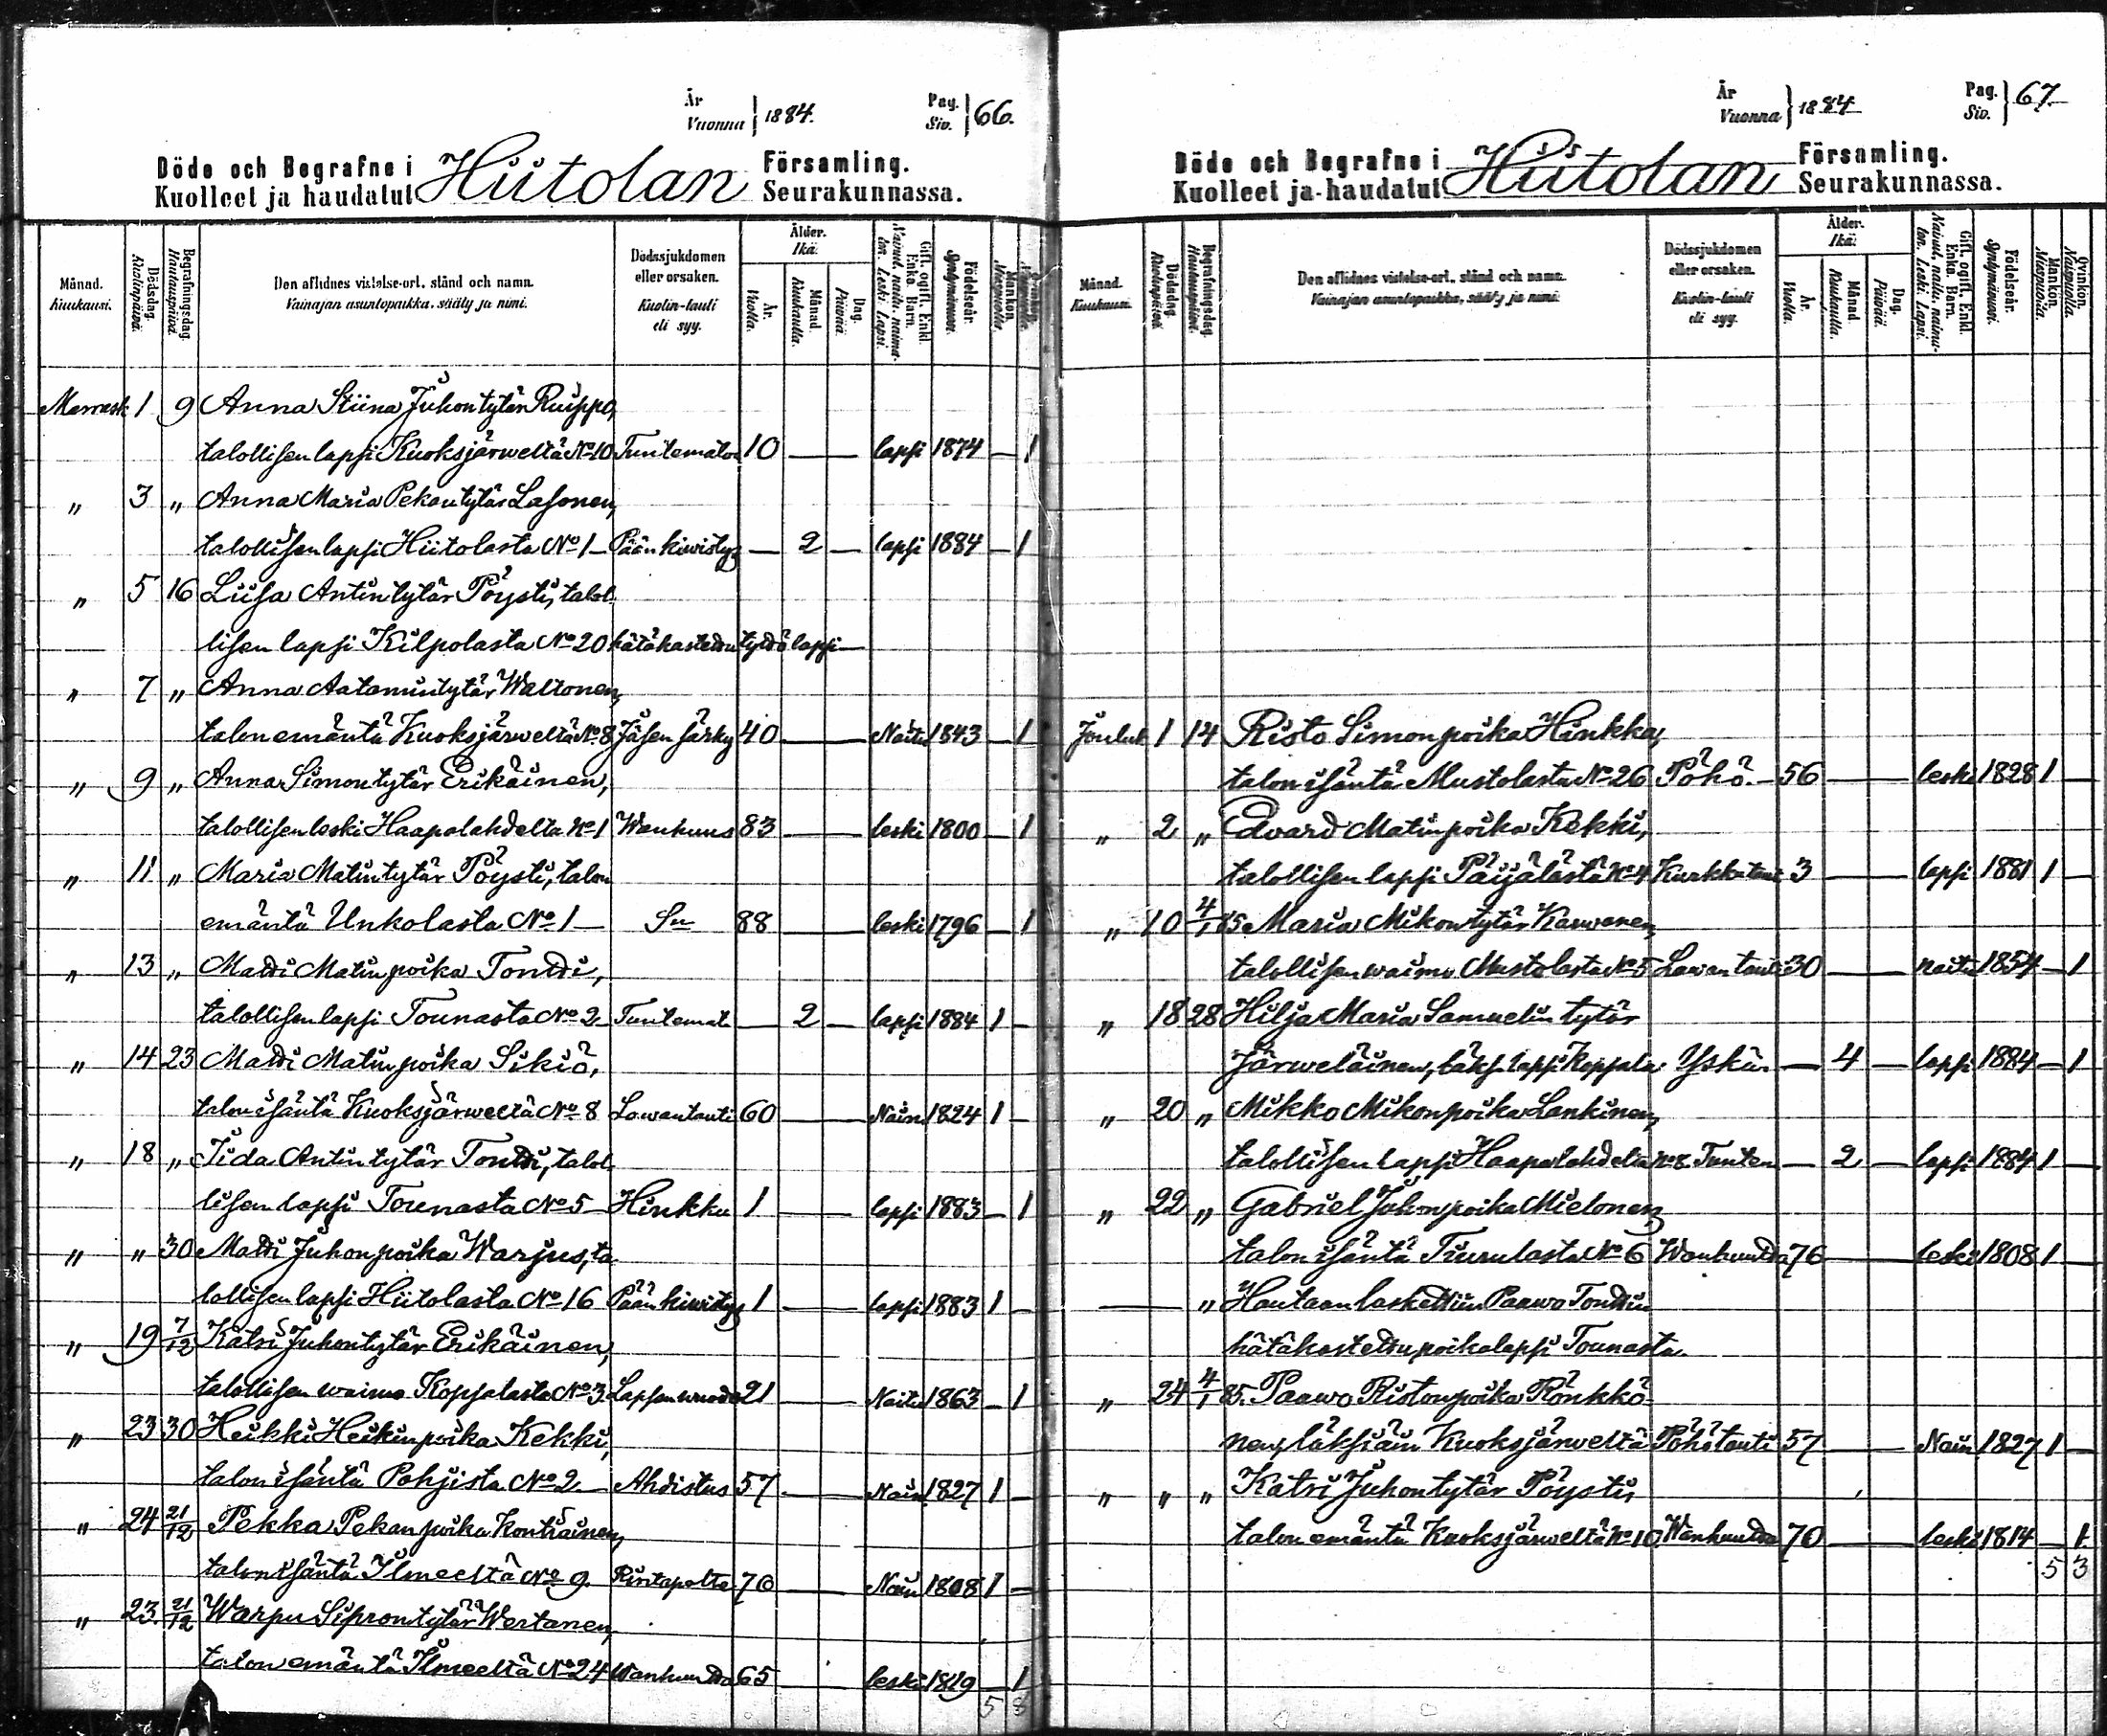 År
Vuonna } 1884.
Pag.
Siv. } 66.
Döde och Begrafne i Hiitolan Församling.
Kuolleet ja haudatut Seurakunnassa.
Månad. Kuukausi.
Dödsdag. Kuolinpäivä.
Begrafningsdag. Hautauspäivä.
Den aflidnes vistelse-ort, stånd och namn.
Vainajan asuntopaikka, sääty ja nimi.
Dödssjukdomen eller orsaken.
Kuolin-tauti eli syy.
Ålder. Ikä.
År. Vuotta.
Månad. Kuukautta.
Dag. Päivää.
Gift, ogift, Enkl. Enka. Barn.
Nainut, naitu, naimaton. Leski. Lapsi.
Födelseår. Syntymävuosi.
Mankön. Miespuolta.
Qvinkön. Naispuolta.
Marrask 1 9 Anna Stiina Juhontytär Ruippo,
talollisen lapsi Kuoksjärweltä No 10 Tuntematon 10 — lapsi 1874 — 1
" 3 " Anna Maria Pekantytär Lasonen,
talollisen lapsi Hiitolasta No 1 — Päänkiwistys — 2 — lapsi 1884 — 1
" 5 16 Liisa Antintytär Pöysti, talol
lisen lapsi Kilpolasta No 20 hätäkastettu tyttölapsi —
" 7 " Anna Aatamintytär Waltonen,
talon emäntä Kuoksjärweltä No 8 Jäsen särky 40 — Naitu 1843 — 1
" 9 " Anna Simontytär Erikäinen,
talollisen leski Haapalahdelta No 1 Wanhuus 83 — leski 1800 — 1
" 11 " Maria Matintytär Pöysti, talon
emäntä Unkolasta No 1 — Sn 88 — leski 1796 — 1
" 13 " Matti Matinpoika Tontti,
talollisen lapsi Tounasta No 2 — Tuntemat — 2 — lapsi 1884 1 —
" 14 23 Matti Matinpoika Sikiö,
talon isäntä Kuoksjärweltä No 8 Lawantauti 60 — Nainu 1824 1 —
" 18 " Iida Antintytär Tontti, talol
lisen lapsi Tounasta No 5 — Hinkku 1 — lapsi 1883 — 1
" " 30 Matti Juhonpoika Warjus, ta
lollisen lapsi Hiitolasta No 16 Päänkiwistys 1 — lapsi 1883 1 —
" 19 7/12 Katri Juhontytär Erikäinen,
talollisen waimo Kopsalasta No 3 Lapsenwuode 21 — Naitu 1863 — 1
" 23 30 Heikki Heikinpoika Kekki,
talon isäntä Pohjista No 2 — Ahdistus 57 — Nain 1827 1 —
" 24 21/12 Pekka Pekanpoika Kontiainen,
talon isäntä Ilmeeltä No 9. Rintapolte 76 — Nain 1808 1 —
" 23. 21/12 Warpu Siprontytär Wertanen,
talon emäntä Ilmeeltä No 24 Wanhuutta 65 — leski 1819 — 1
5 8
År
Vuonna } 1884
Pag.
Siv. } 67.
Döde och Begrafne i Hiitolan Församling.
Kuolleet ja haudatut Seurakunnassa.
Månad. Kuukausi.
Dödsdag. Kuolinpäivä.
Begrafningsdag. Hautauspäivä.
Den aflidnes vistelse-ort, stånd och namn.
Vainajan asuntopaikka, sääty ja nimi.
Dödssjukdomen eller orsaken.
Kuolin-tauti eli syy.
Ålder. Ikä.
År. Vuotta.
Månad. Kuukautta.
Dag. Päivää.
Gift, ogift, Enkl. Enka. Barn.
Nainut, naitu, naimaton. Leski. Lapsi.
Födelseår. Syntymävuosi.
Mankön. Miespuolta.
Qvinkön. Naispuolta.
Jouluk 1 14 Risto Simonpoika Hinkka,
talon isäntä Mustolasta No 26 Pöhö. — 56 — leski 1828 1 —
" 2 " Edvard Matinpoika Kekki,
talollisen lapsi Päijälästä No 4 Kurkkutau 3 — lapsi 1881 1 —
" 10 4/1 85 Maria Mikontytär Karwonen,
talollisen waimo Mustolasta No 5 Lawantauti 30 — naitu 1854 — 1
" 18 28 Hilja Maria Samuelin tytär
Järweläinen, läks. lapsi Kopsala Yskä. — 4 — lapsi 1884 — 1
" 20 " Mikko Mikonpoika Lankinen,
talollisen lapsi Haapalahdelta No 8 Tuntem — 2 — lapsi 1884 1 —
" 22 " Gabriel Juhonpoika Mielonen,
talon isäntä Tiurulasta No 6 Wanhuutta 76 — leski 1808 1 —
— " Hautaan laskettiin Paawo Tonttin
hätäkastettu poikalapsi Tounasta.
" 24 4/1 85. Paawo Ristonpoika Rönkkö
nen, läksiäin Kuoksjärweltä Pöhötauti 57 — Nain 1827 1 —
" " " Katri Juhontytär Pöysti,
talon emäntä Kuoksjärweltä No 10 Wanhuutta 70 — leski 1814 — 1
5 3